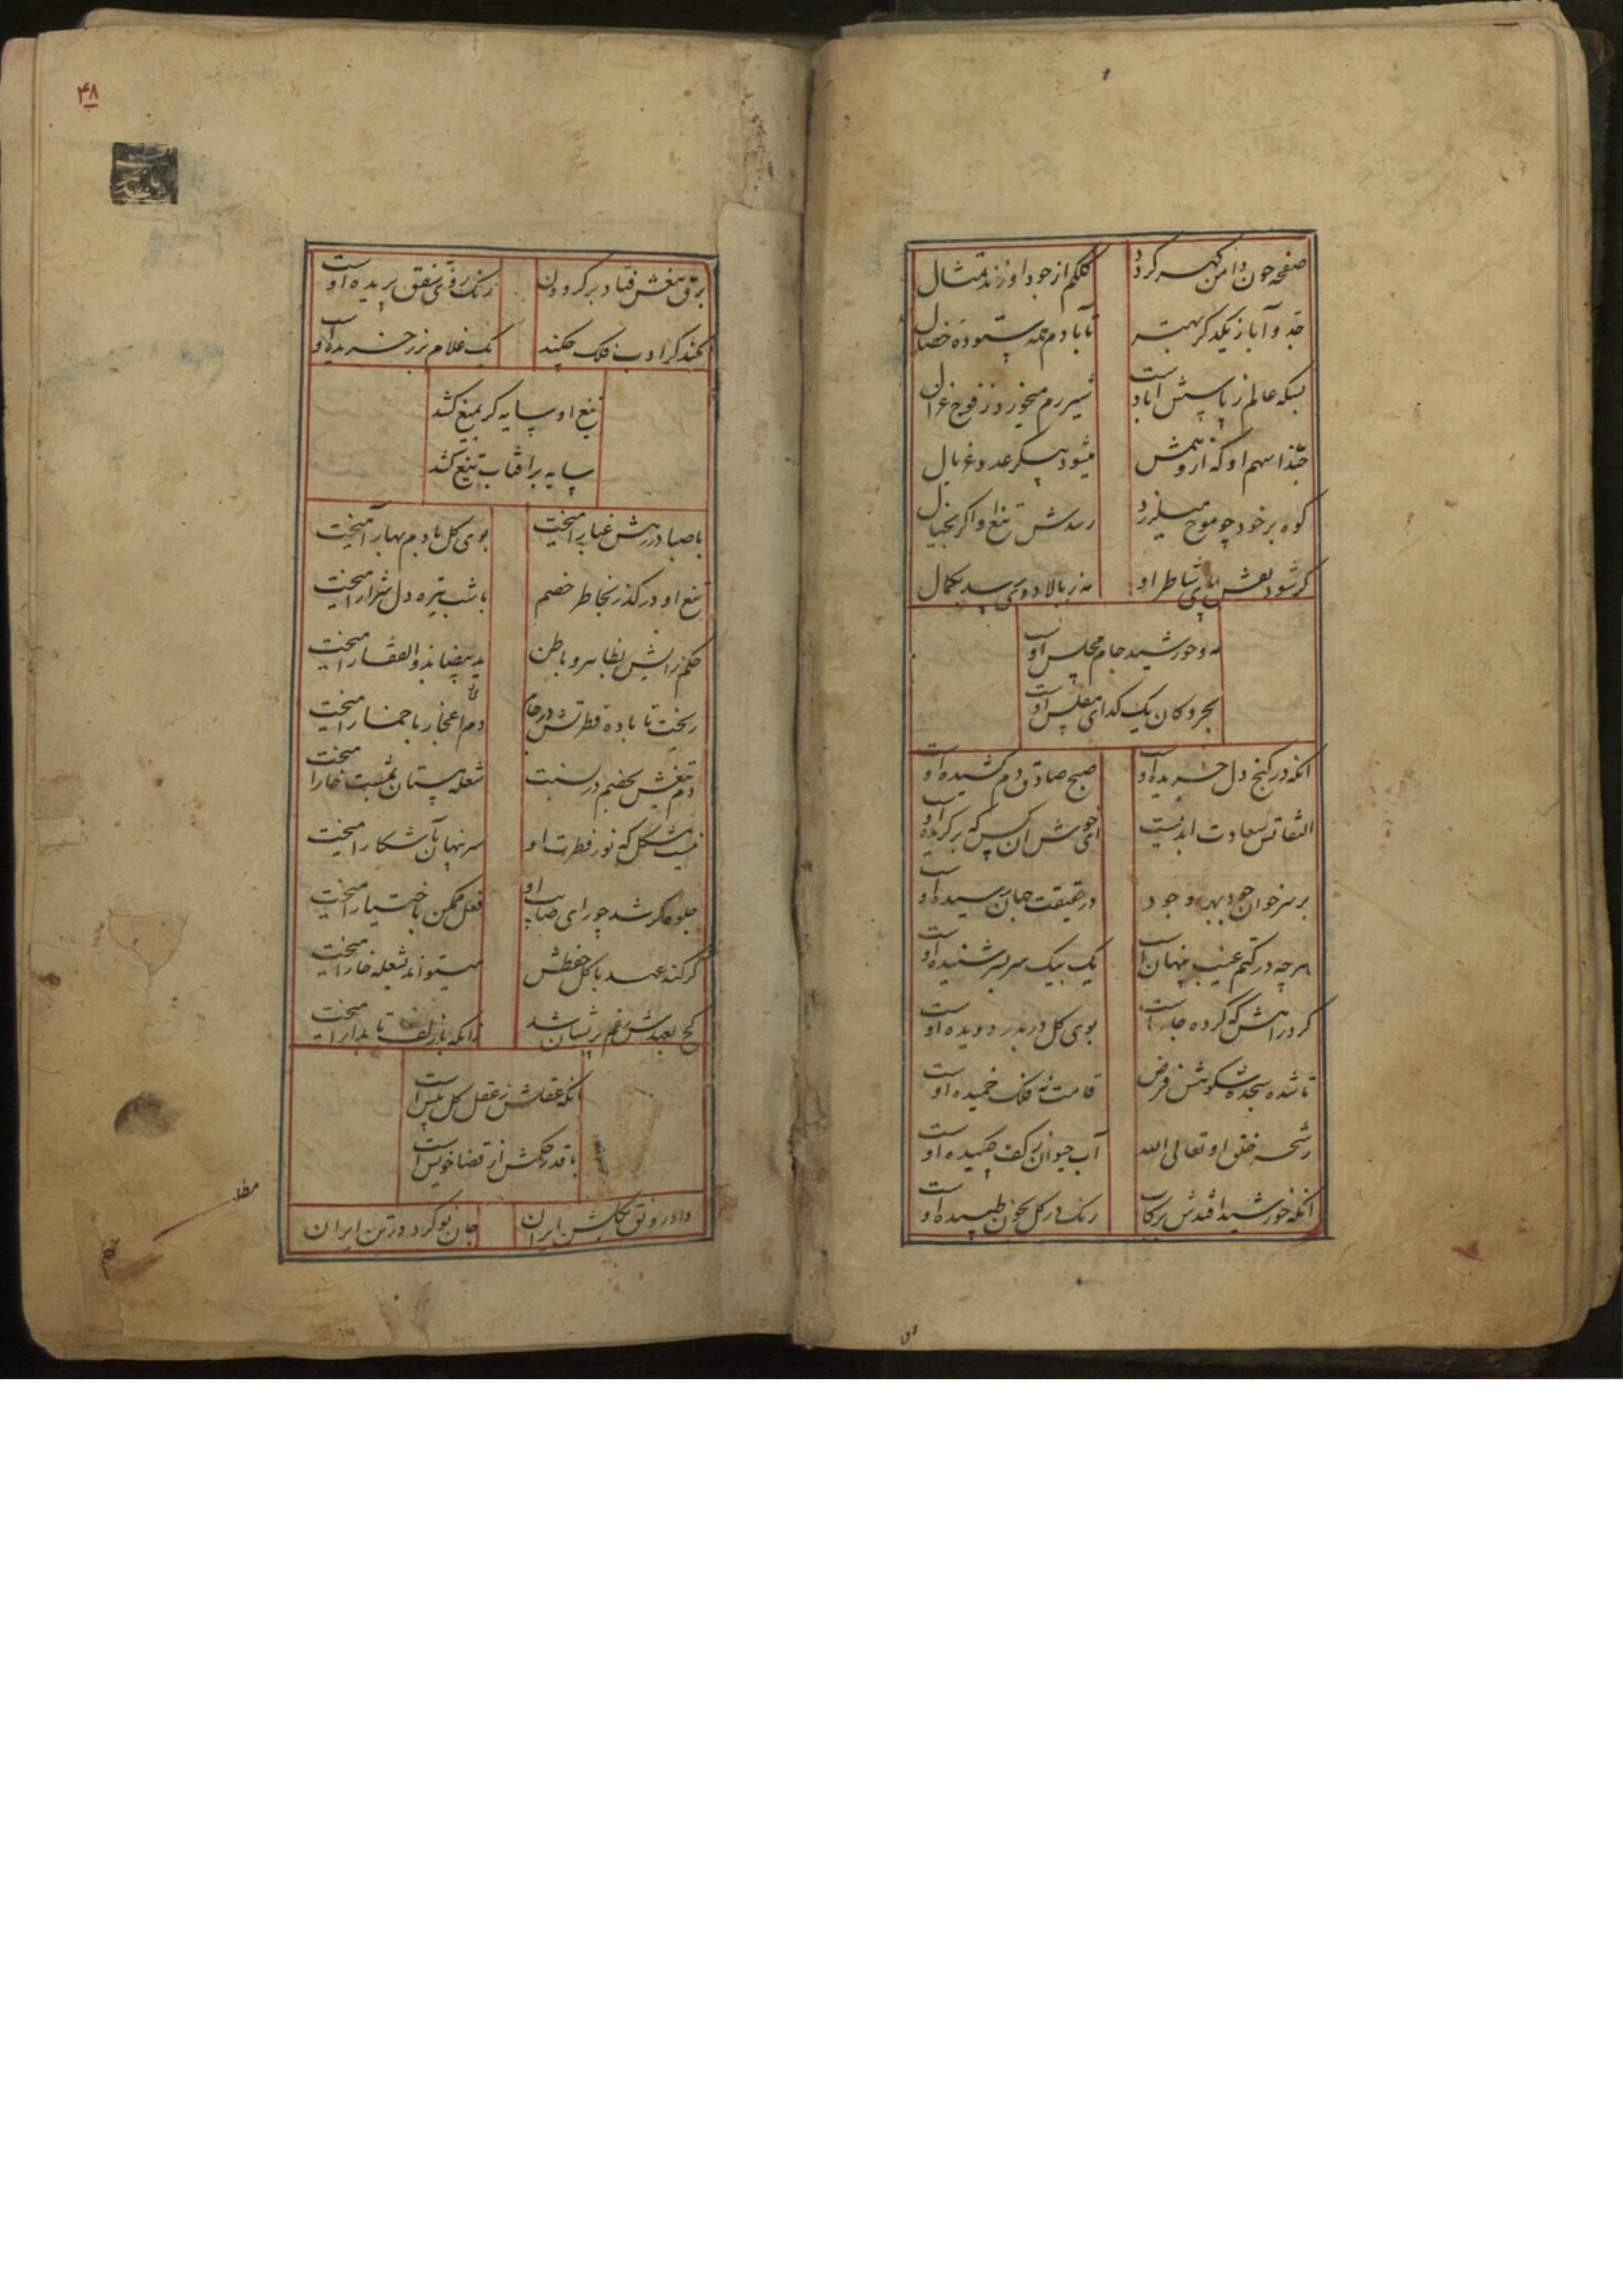 صفحه چون دامن گهر گردد کلکم از جود او زند تمثال
جد و آبا ز یکدگر بهتر تا بآدم همه ستوده خصال
بسکه عالم ز پاسش آباد است شیر رم میخورد ز فوج غزال
حبذا سهم او که از وهمش میشود پیکر عدو غربال
کوه بر خود چو موج میلرزد رسدش تیغ او اگر بخیال
گر شود نقش پای شاطر او مه ز بالا دوی رسد بکمال
مه و خورشید جام مجلس اوست
بحر و کان یک گدای مفلس اوست
آنکه در کنج دل خزیده اوست صبح صادق دم کشیده اوست
التفاتش سعادت ابدیست ای خوش آن کس که برگزیده اوست
بر سر خوان جود بهر وجود در حقیقت جهان رسیده اوست
هرچه در کتم غیب پنهان است یک بیک سر بسر شنیده اوست
گرد راهش که کرده جا است بوی گل در بدر دویده اوست
تا شده سجده شکوهش فرض قامت نه فلک خمیده اوست
رشحه خلق او تعالی الله آب حیوان ز کف چکیده اوست
آنکه خورشید اقدس برکاب رنک در گل بخون طپیده اوست
۴۸
برق تیغش فتاد بر گردون رنک روی شفق پریده اوست
نکند گر ادب فلک چکند یک غلام بزر خریده اوست
تیغ او سایه گر بمیغ کشد
سایه بر آفتاب تیغ کشد
با صبا در رهش غبار آمیخت بوی گل با دم بهار آمیخت
تیغ او در گذر بخاطر خصم با شب تیره دل شرار آمیخت
حکم رانیش بظاهر و باطن ید بیضا بذوالفقار آمیخت
ریخت تا باده فطرتش در جام دم اعجاز با خمار آمیخت
دم تیغش بخصم در شعله پستان بمشت خار آمیخت
نیست مشکل که نور فطرت او سر نهان بآشکار آمیخت
جلوه گر شد چو رای صایب او فعل ممکن باختیار آمیخت
گر کند عهد با گل حفظش میتواند بشعله خار آمیخت
کج بعهدش ز غم پریشان شد زانکه با زلف تابدار آمیخت
آنکه عقلش ز عقل کل بیش است
با قدر حکمش از قضا خویش است
داد رونق بکیش ایران جان نو کرد در تن ایران